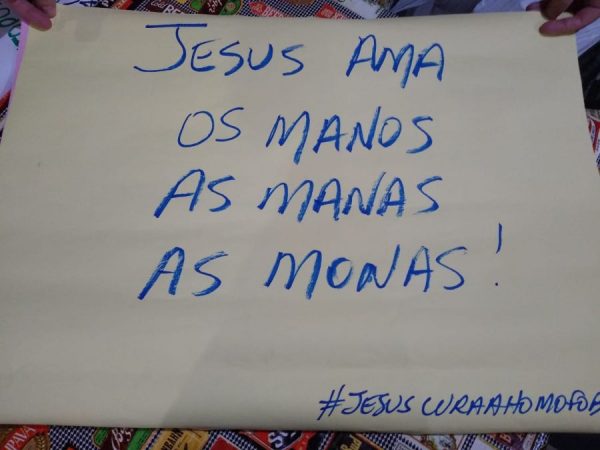 JESUS AMA
OS MANOS
AS MANAS
AS MONAS!
#JESUSCURAAHOMOFOB